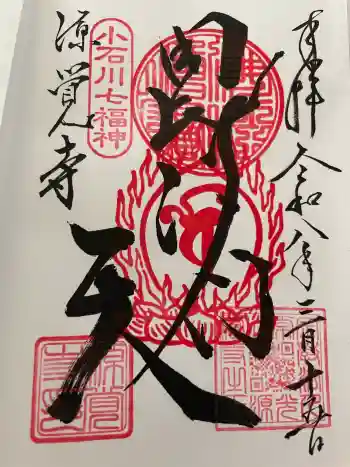 奉拝 令和八年二月十五日
毘沙門天
小石川七福神
源覺寺